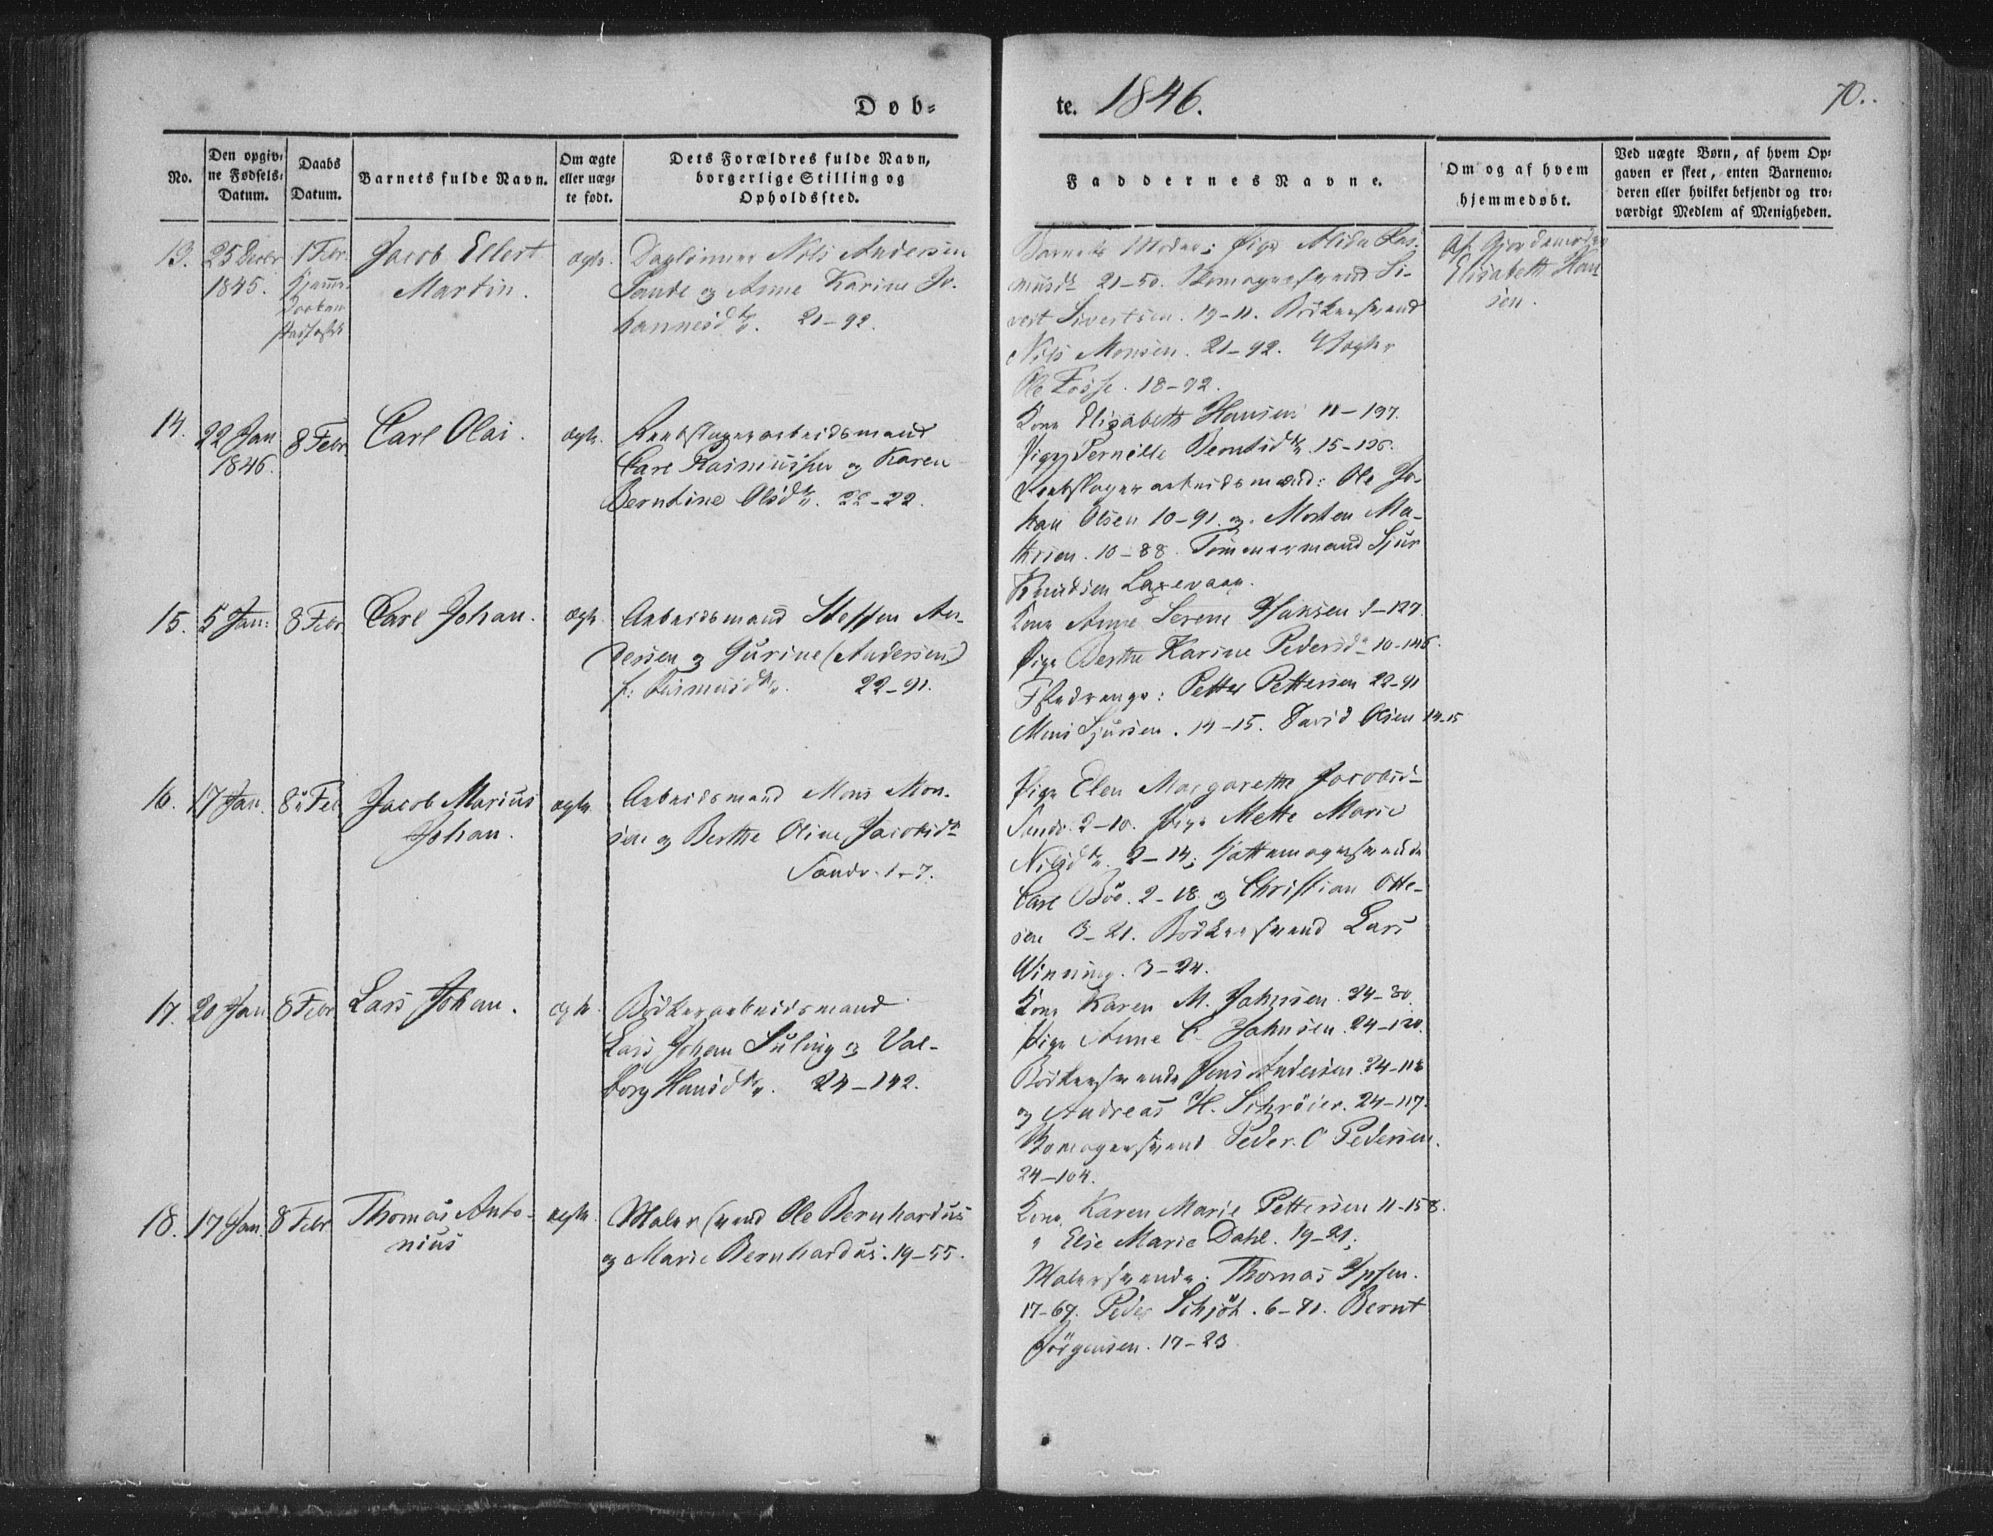 Døb=
te. 1846.
70.
No.
Den opgiv=
ne Fødsels=
Datum.
Daabs
Datum.
Barnets fulde Navn.
Om ægte
eller uæg=
te født.
Dets Forældres fulde Navn,
borgerlige Stilling og
Opholdssted.
Faddernes Navne.
Om og af hvem
hjemmedøbt.
Ved uægte Børn, af hvem Op=
gaven er skeet, enten Barnemo=
deren eller hvilket bekjendt og tro=
værdigt Medlem af Menigheden.
13.
25 Decbr
1845.
1 Febr.
Jacob Ellert
Martin.
ægte.
Daglønner Nils Andersen
Sande og Anne Karine Jo-
hannesdtr. 21-92.
Barnets Moder; Pige Alida Ras-
musdtr 21-50. Skomagersvend Si-
vert Sivertsen. 19-11. Bödkersvend
Nils Monsen. 21-92. Vægter
Ole Fosse. 18-92.
Af Gjordemoder
Elisabeth Han
sen.
14.
22 Jan
1846.
8 Febr
Carl Olai.
ægte.
Reebslagerarbeidsmand
Carl Rasmussen og Karen
Berntine Olsdtr. 22-22.
Kone Elisabeth Hansen 11-197.
Pige Pernille Berntsdtr. 15-126.
Reebslagerarbeidsmænd: Ole Jo-
han Olsen 10-91. og Morten Ma-
thisen. 10-88. Tømmermand Sjur
Knudsen Laxevaag.
15.
5 Jan:
8 Febr
Carl Johan.
ægte.
Arbeidsmand Steffen An-
dersen og Gurine (Andersen)
f: Rasmusdtr. 22-91.
Kone Anne Serene Hansen 1-127.
Pige Berthe Karine Pedersdr 10-146.
Petter Pettersen 22-91
Mons Sjursen. 14-15. David Olsen 14-15
16.
17 Jan.
8 Feb
Jacob Marius
Johan.
ægte.
Arbeidsmand Mons Mon-
sen og Berthe Oline Jacobsdtr
Sandv. 1-7.
Pige Elen Margarethe Jacobsd-
Sandv. 2-10. Pige Mette Marie
Nilsdtr. 2-14; Hattemagersvende
Carl Böe. 2-18. og Christian Otte-
sen 3-21. Bödkersvend Lars
Winning. 3-24.
17.
20 Jan
8 Febr
Lars Johan.
ægte.
Bödkerarbeidsmand
Lars Johan Suling og Val-
borg Hansdtr. 24-142.
Kone Karen M. Jahnsen. 24-30.
Pige Anne C. Jahnsen. 24-120.
Bödkersvende Jens Andersen. 24-118
og Andreas H. Schröier. 24-117.
Skomagersvend Peder. C Pedersen.
24-104.
18.
17 Jan.
8 Febr
Thomas Anto-
nius
ægte.
Malersvend Ole Bernhardus
og Marie Bernhardus. 19-55.
Kone Karen Marie Pettersen 11-158.
" Else Marie Dahl. 19-21;
Malersvende: Thomas Ipsen.
17-69. Peder Schjöt. 6-81. Bernt
Jörgensen. 17-23.